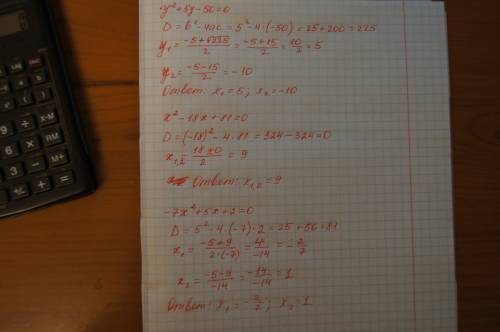 y² + 5y - 50 = 0
D = b² - 4ac = 5² - 4·(-50) = 25 + 200 = 225
y₁ = (-5+√225)/2 = (-5+15)/2 = 10/2 = 5
y₂ = (-5-15)/2 = -10
Ответ: x₁ = 5; x₂ = -10
x² - 18x + 81 = 0
D = (-18)² - 4·81 = 324 - 324 = 0
x₁,₂ = (18±0)/2 = 9
Ответ: x₁,₂ = 9
-7x² + 5x + 2 = 0
D = 5² - 4·(-7)·2 = 25 + 56 = 81
x₁ = (-5+9)/(2·(-7)) = 4/-14 = -2/7
x₂ = (-5-9)/-14 = -14/-14 = 1
Ответ: x₁ = -2/7; x₂ = 1
X-M
RM